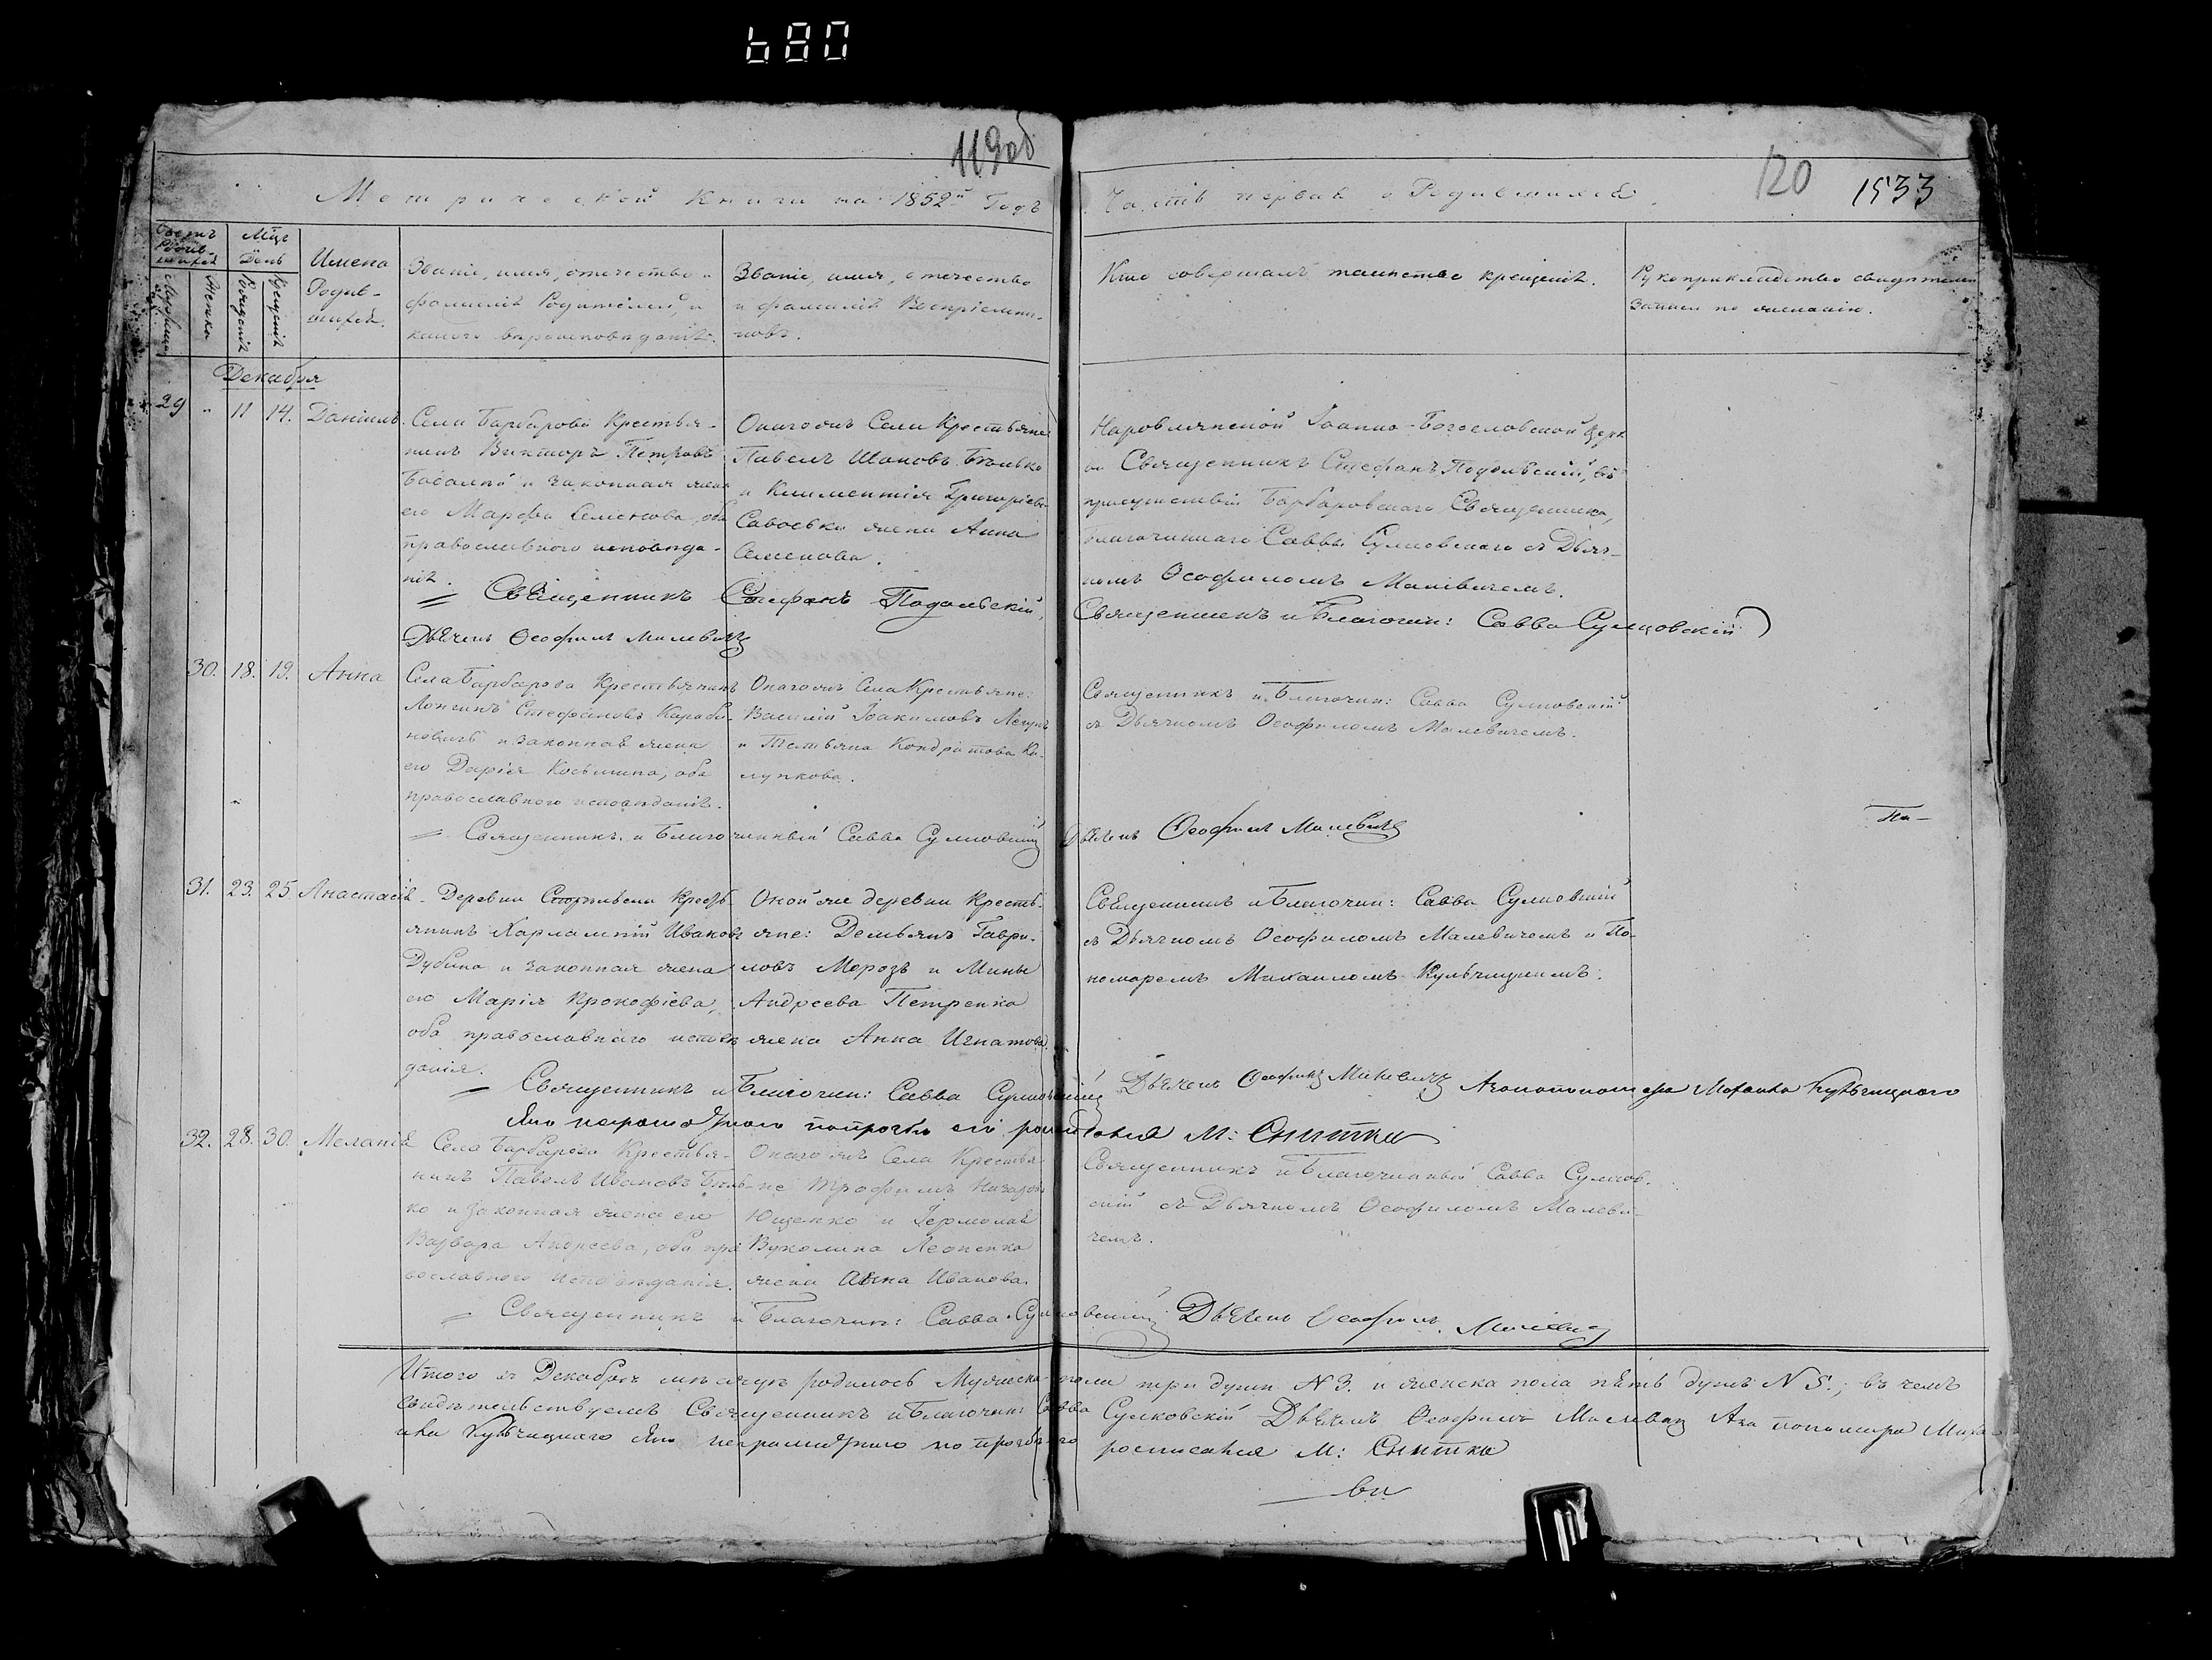 680
119об
Метрической Книги на 1852й Годъ
Часть первая о Родившихся.
120
1533
Счетъ Родив-шихся
Мѣс. День
Мужеска
Женска
Рожденія
Крещенія
Имена
Родив-
шихся.
Званіе, имя, отечество и
фамилія Родителей, и
какого вѣроисповѣданія.
Званіе, имя, отечество
и фамилія Воспріемни-
ковъ.
Кто совершалъ таинство крещенія.
Рукоприкладство свидѣтелей
записи по желанію.
Декабря
29 " 11 14. Даніилъ.
Села Барбарова Крестья-
нинъ Викторъ Петровъ
и законная жена
его Марфа Семенова, оба
православного исповѣда-
нія.
Онагожъ Села Крестьяне
Павелъ Ивановъ Бѣлько
и Климентія Григоріева
Савоська жена Анна
Семенова.
Наровлянской Іоанно-Богословской Церк
ви Священникъ Стефанъ Подольскій, въ
присутствіи Барбаровскаго Священника,
Благочиннаго Саввы Сулковскаго съ Дьяч-
комъ Ѳеофиломъ Малевичемъ.
Священникъ Стефанъ Подольскій,
Священникъ и Благочин: Савва Сулковскій
Дьячекъ Ѳеофилъ Малевичъ
30. 18. 19. Анна
Села Барбарова Крестьянинъ
Лонгинъ Стефановъ Караба-
новичъ и законная жена
его Дарія Косьмина, оба
православного исповѣданія.
Онагожъ Села Крестьяне:
Василій Іоакимовъ
и Татьяна Кондратова Ка-
лупкова.
Священникъ и Благочин: Савва Сулковскій
съ Дьячкомъ Ѳеофиломъ Малевичемъ.
Па-
Священникъ и Благочинный Савва Сулковскій Дьячекъ Ѳеофилъ Малевичъ
31. 23. 25 Анастасія
Деревни Крест-
янинъ Харлампій Ивановъ
Дубина и законная жена
его Марія Прокофіева,
оба православнаго исповѣ
данія.
Оной же деревни Кресть-
яне: Демьянъ Гаври-
ловъ Морозъ и Мины
Андреева Петренка
жена Анна Игнатова.
Священникъ и Благочин: Савва Сулковскій
съ Дьячкомъ Ѳеофиломъ Малевичемъ и По-
номаремъ Михаиломъ Кульчицкимъ.
Священникъ и Благочин: Савва Сулковскій Дьячекъ Ѳеофилъ Малевичъ Аза пономара Михаила Кульчицкого
Яко неграмотного по прозбѣ его росписался М: Снытка
32. 28. 30. Меланія
Села Барбарова Крестья-
нинъ Павелъ Ивановъ Бѣль-
ко и законная жена его
Варвара Андреева, оба пра
вославного исповѣданія.
Онаго жъ Села Крестья-
не Трофимъ Назаровъ
Ющенко и Іермолая
Вуколина Леоненка
жена Анна Иванова.
Священникъ и Благочинный Савва Сулков-
скій съ Дьячкомъ Ѳеофиломъ Малеви-
чемъ.
Священникъ и Благочин: Савва Сулковскій Дьячекъ Ѳеофилъ Малевичъ
Итого въ Декабрѣ мѣсяцѣ родилось Мужеска пола три души N 3. и женска пола пять душъ N 5.; въ чемъ
свидѣтельствуемъ Священникъ и Благочин: Савва Сулковскій Дьячекъ Ѳеофилъ Малевичъ Аза пономара Миха
ила Кульчицкого Яко неграмотного по прозбѣ его росписался М: Снытка